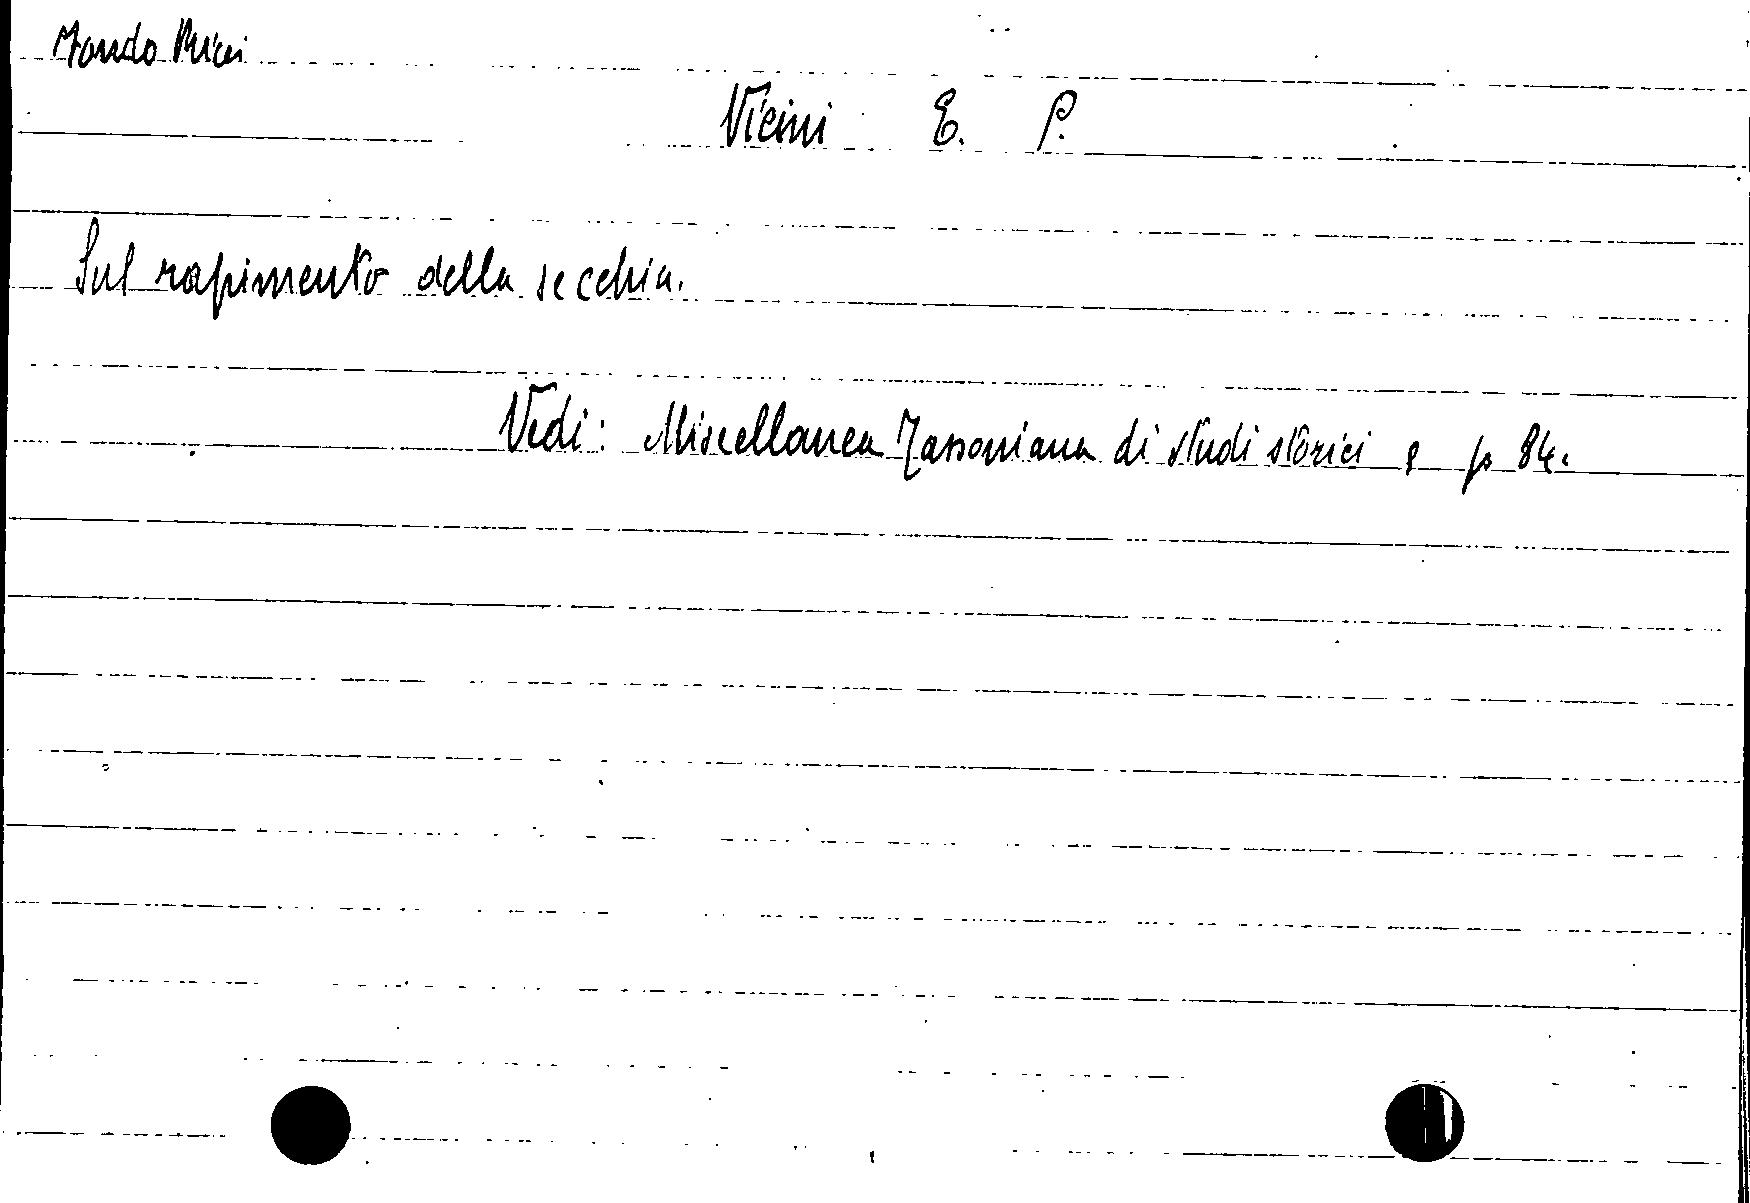 Fondo Ricci
Vicini E. P.
Sul rapimento della secchia.
Vedi: Miscellanea Tassoniana di studi storici e p 84.